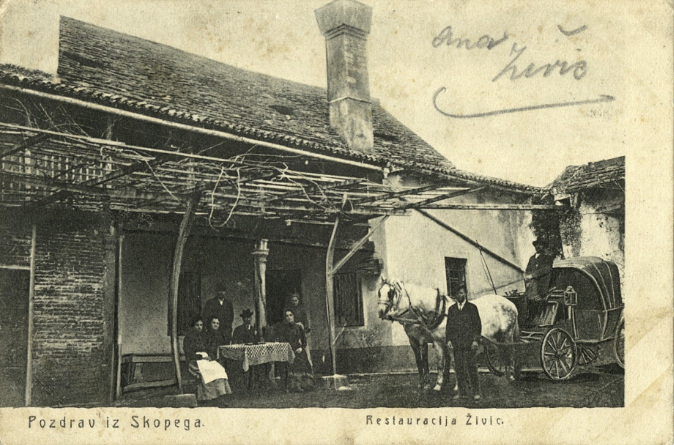 Ana
Živic
Pozdrav iz Skopega.
Restauracija Živic.